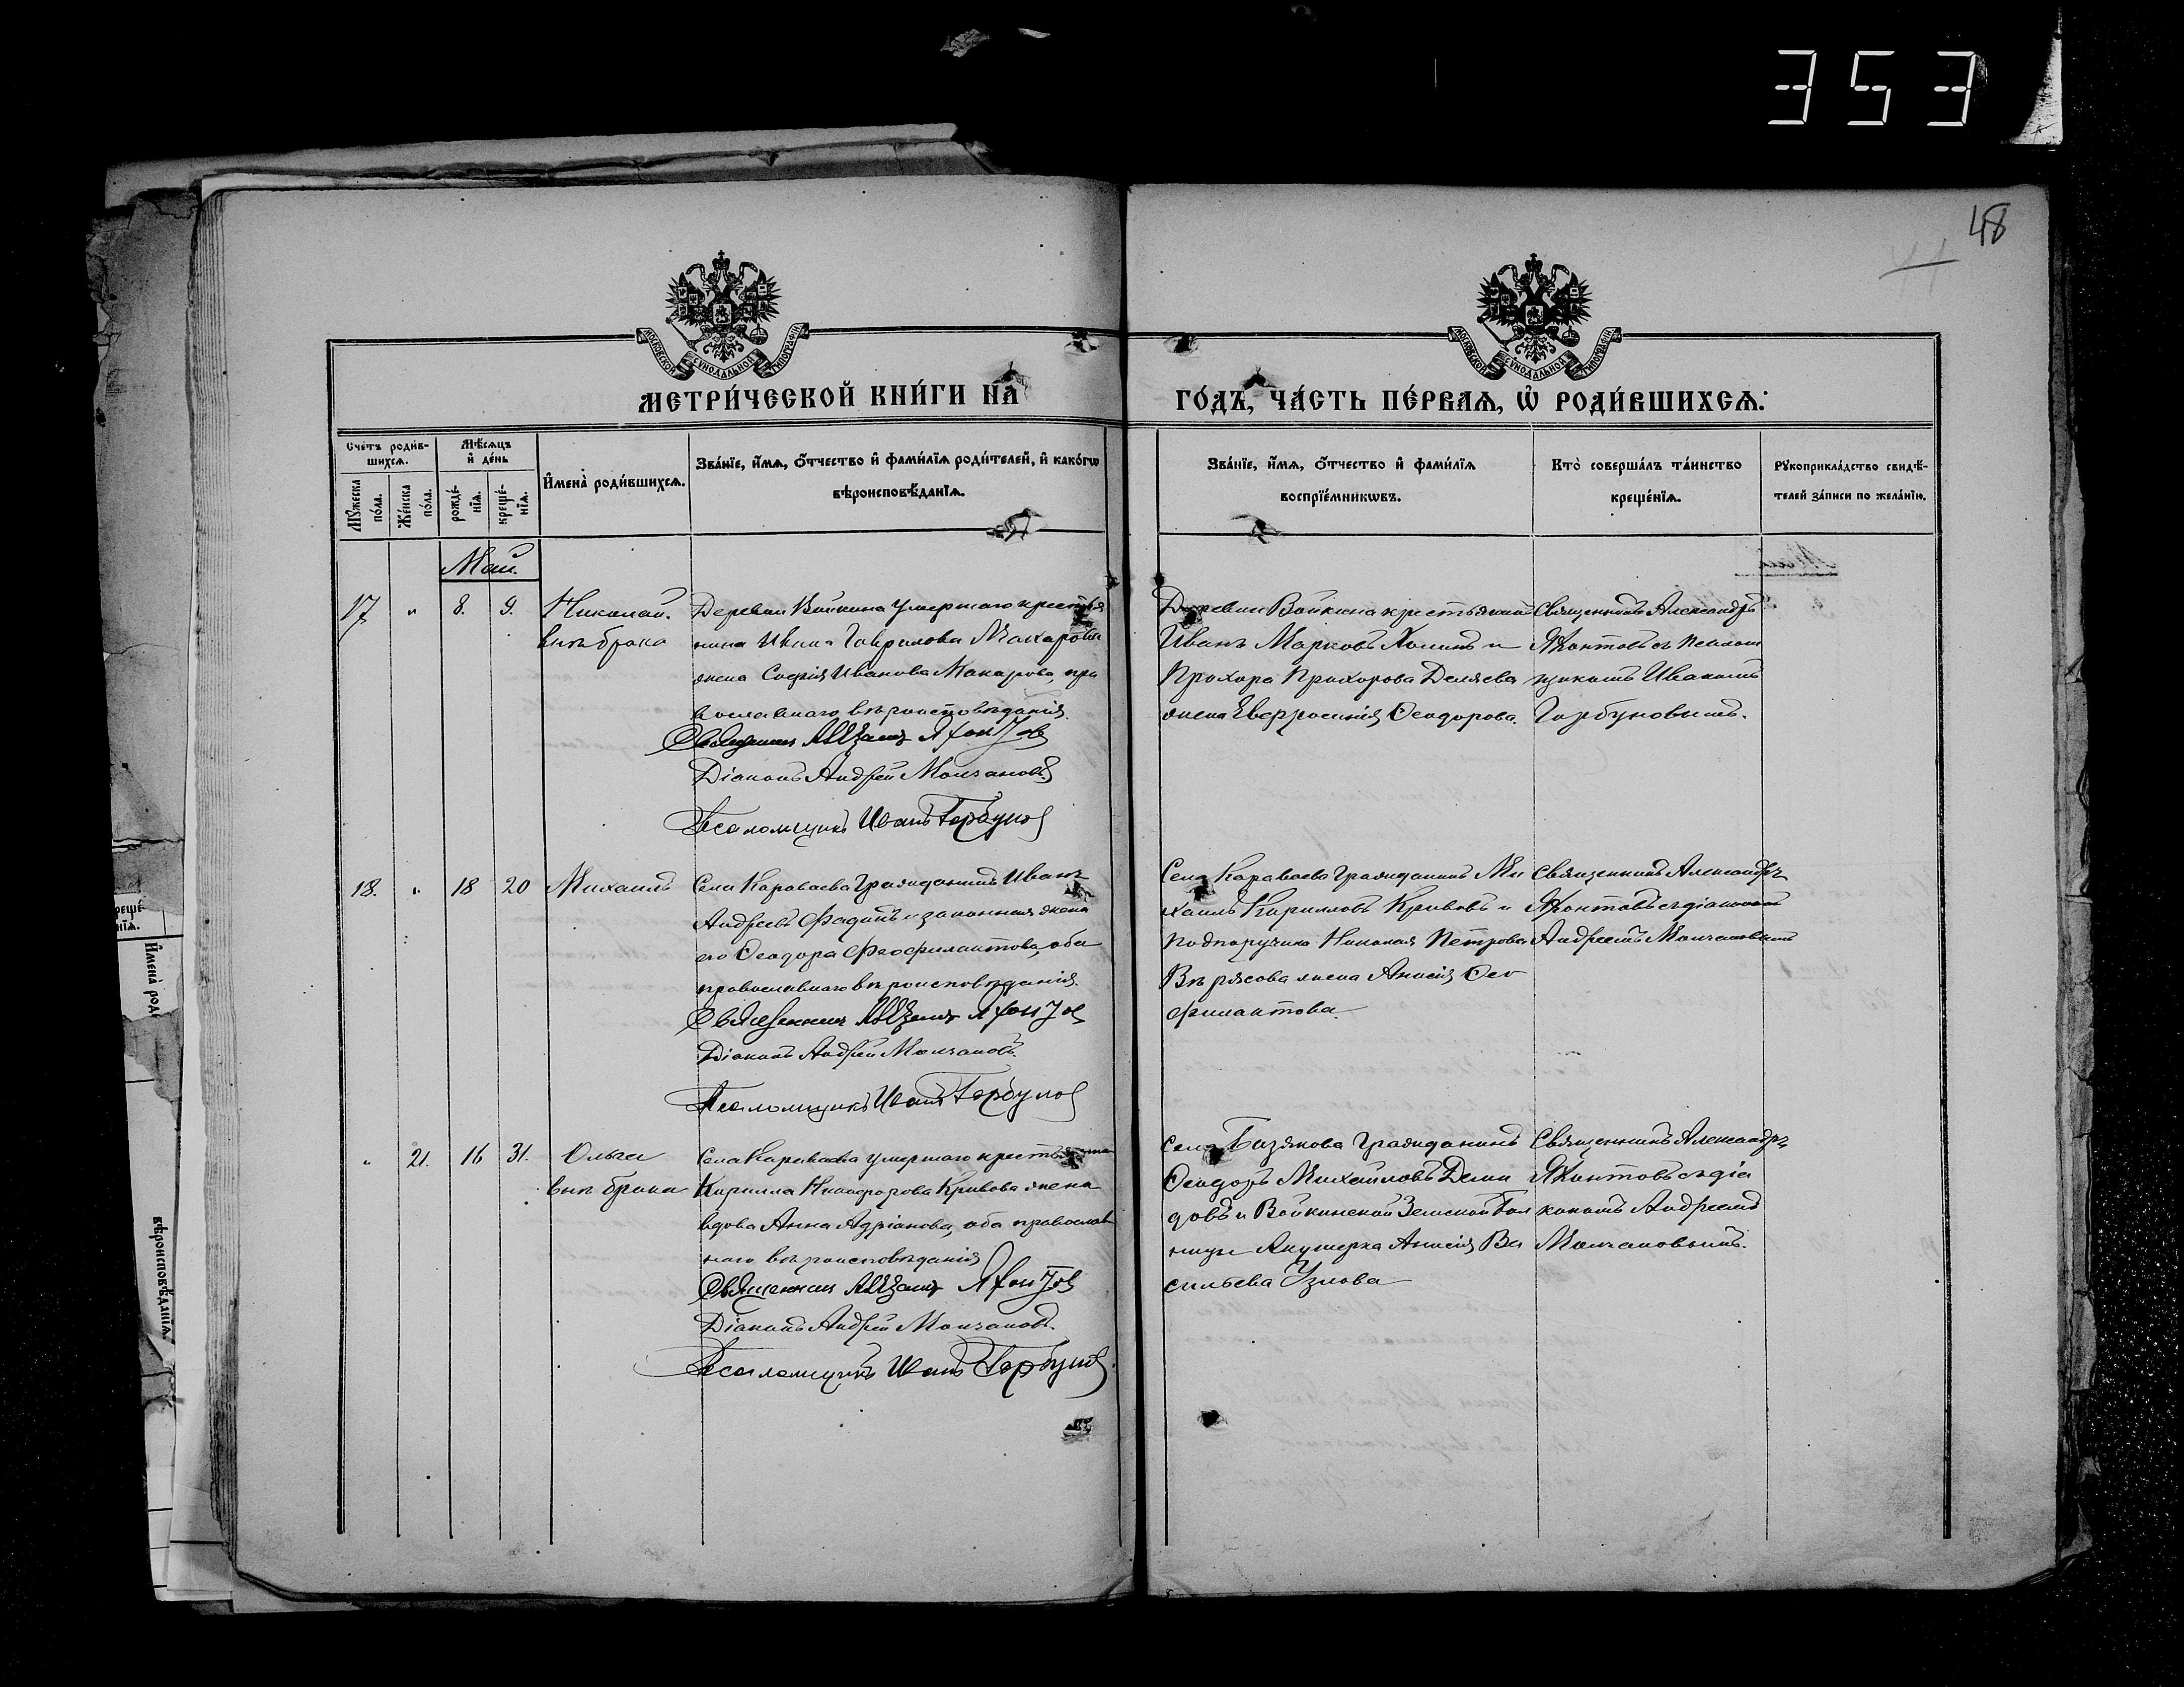 353
48
МОСКОВСКОЙ СѴНОДАЛЬНОЙ ТИПОГРАФІИ
МОСКОВСКОЙ СѴНОДАЛЬНОЙ ТИПОГРАФІИ
МЕТРИ́ЧЕСКОЙ КНИ́ГИ НА
ГО́ДЪ, ЧА́СТЬ ПЕ́РВАЯ, Ѡ҆ РОДИ́ВШИХСЯ:
Сче́тъ роди́в-
шихся.
Мѣ́сяцъ
и҆ де́нь
Мꙋ́жеска
по́ла.
Же́нска
по́ла.
рожде́-
нїя.
креще́-
нїя.
И҆мена̀ роди́вшихся.
Зва́нїе, и҆́мя, ѻ҆́тчество и҆ фами́лїя роди́телей, и҆ како́гѡ
вѣроисповѣ́данїя.
Зва́нїе, и҆́мя, ѻ҆́тчество и҆ фами́лїя
воспрїе́мникѡвъ.
Кто̀ соверша́лъ та́инство
креще́нїя.
Рꙋкоприкла́дство свидѣ́-
телей за́писи по жела́нїю.
Май.
17 " 8. 9. Николай.
внѣ брака
Деревни Войкина умершаго крестья
нина Ивана Гаврилова Макарова
жена Софія Иванова Макарова, пра
вославнаго вѣроисповѣданія.
Священникъ Яхонтов
Діаконъ Андрей Молчановъ
Псаломщикъ Иванъ Горбунов
Деревни Войкина крестьянинъ
Иванъ Марковъ Холинъ и
Прохора Прохорова Деляева
жена Евфросинія Ѳеодорова.
Священникъ Александръ
Яхонтовъ съ псалом
щикомъ Иваномъ
Горбуновымъ.
18. " 18 20 Михаилъ
Села Караваева Гражданинъ Иванъ
Андреевъ Фадинъ и законная жена
его Ѳеодора Феофилактова, оба
православнаго вѣроисповѣданія.
Священник Яхонтов
Діаконъ Андрей Молчановъ.
Псаломщикъ Иванъ Горбунов
Села Караваева Гражданинъ Ми
хаилъ Кирилловъ Кривовъ и
подпоручика Николая Петрова
Вырясова жена Анисія Ѳео
филактова.
Священникъ Александръ
Яхонтовъ съ діакономъ
Андреемъ Молчановымъ
" 21. 16 31. Ольга
внѣ брака
Села Караваева умершаго крестьянина
Кирилла Никифорова Кривова жена
вдова Анна Адріанова, оба православ
наго вѣроисповѣданія
Священник Яхонтов
Діаконъ Андрей Молчановъ.
Псаломщикъ Иванъ Горбунов.
Села Базякова Гражданинъ
Ѳеодоръ Михайловъ Деми
довъ и Войкинской Земской Бол
ницы Акушерка Анисія Ва
сильева Узлова
Священникъ Александръ
Яхонтовъ съ діа
кономъ Андреемъ
Молчановымъ.
креще́-
нїя.
И҆мена̀ род
вѣроисповѣ́данїя.